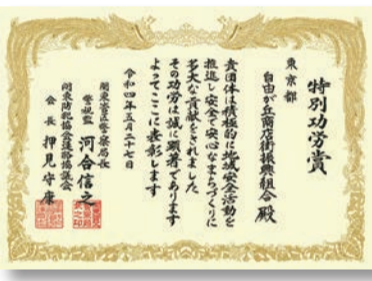 特別功労賞
東京都
自由が丘商店街振興組合殿
貴団体は積極的に地域安全活動を
推進し安全で安心なまちづくりに
多大な貢献をされました
その功労は誠に顕著であります
よってここに表彰します
令和四年五月二十七日
関東管区警察局長
警視監 河合信之
関東防犯協会連絡協議会
会長 押見守康